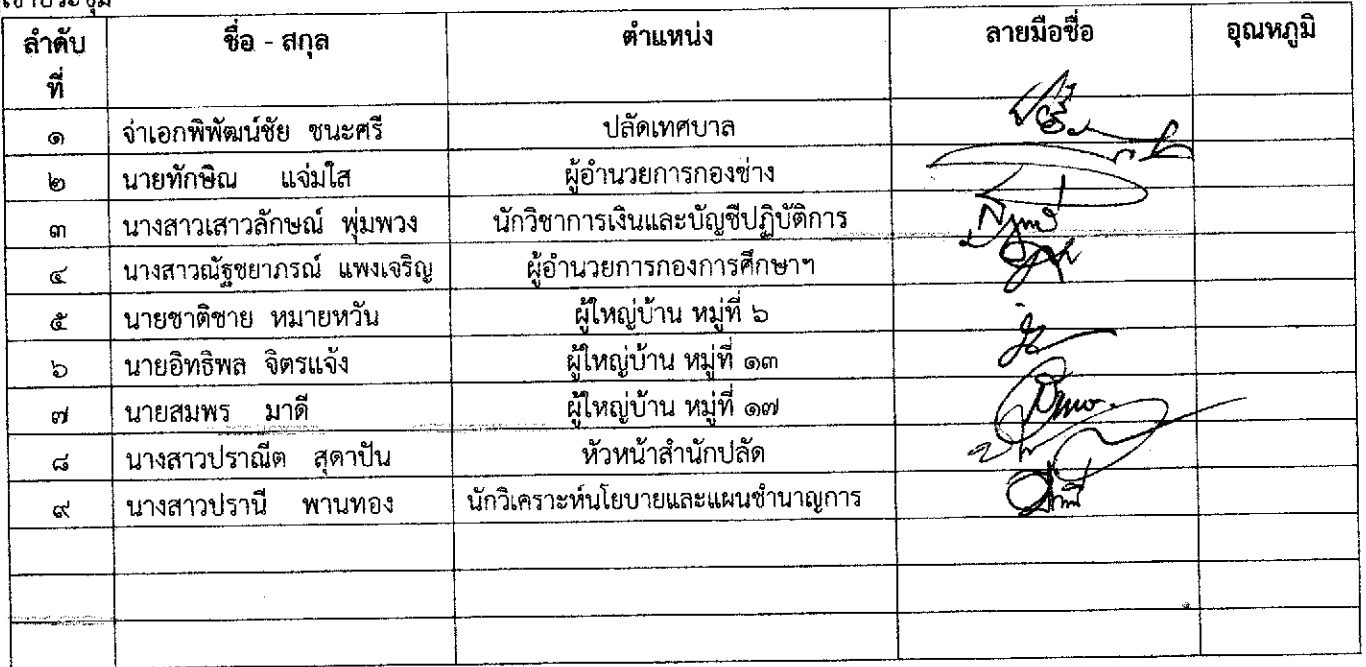 เข้าประชุม
ลำดับที่ ชื่อ - สกุล ตำแหน่ง ลายมือชื่อ อุณหภูมิ
๑ จ่าเอกพิพัฒน์ชัย ชนะศรี ปลัดเทศบาล
๒ นายทักษิณ แจ่มใส ผู้อำนวยการกองช่าง
๓ นางสาวเสาวลักษณ์ พุ่มพวง นักวิชาการเงินและบัญชีปฏิบัติการ
๔ นางสาวณัฐชยาภรณ์ แพงเจริญ ผู้อำนวยการกองการศึกษาฯ
๕ นายชาติชาย หมายหวัน ผู้ใหญ่บ้าน หมู่ที่ ๖
๖ นายอิทธิพล จิตรแจ้ง ผู้ใหญ่บ้าน หมู่ที่ ๑๓
๗ นายสมพร มาดี ผู้ใหญ่บ้าน หมู่ที่ ๑๗
๘ นางสาวปราณีต สุดาปัน หัวหน้าสำนักปลัด
๙ นางสาวปรานี พานทอง นักวิเคราะห์นโยบายและแผนชำนาญการ